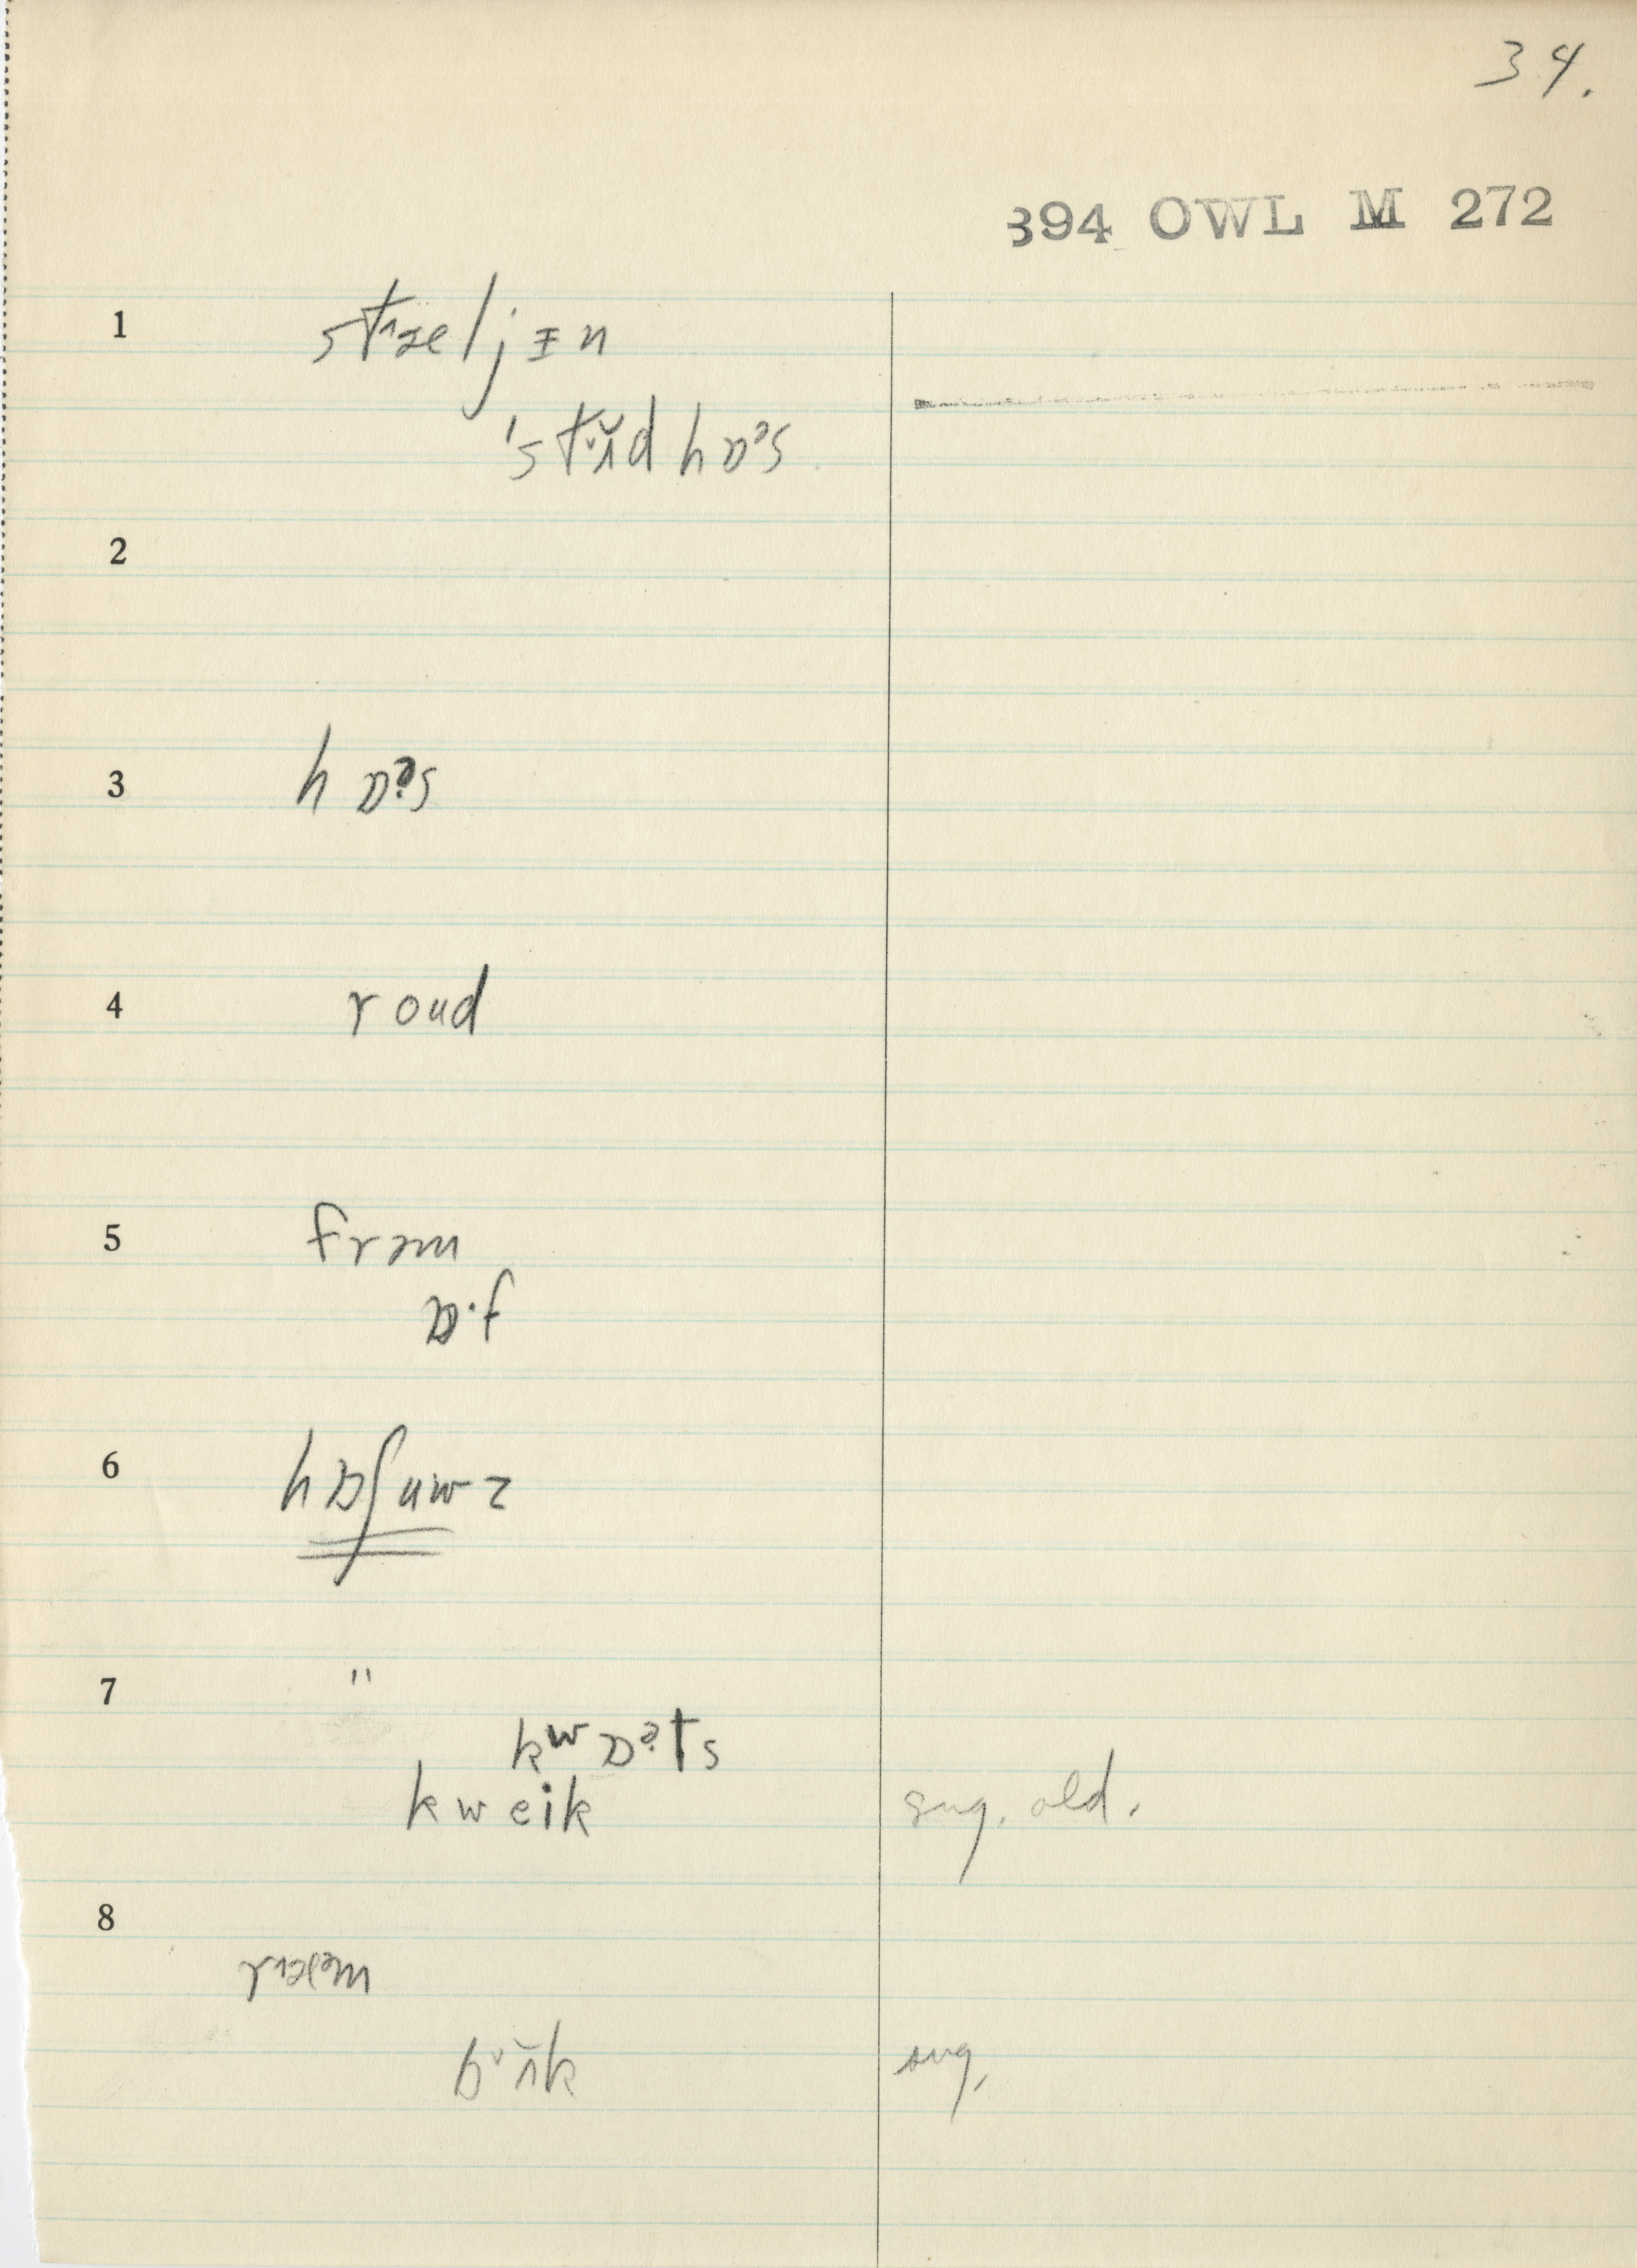 34.
394 OWL M 272
1 stɹ̯æljɪn
ˈstʌ̆d hɒᵊs
2
3 hɒᵊs
4 roud
5 frɔm
ɒ·f
6 hɒʃuwz
7 "
kʷɒᵊts
kweik sug. old.
8
bʌ̆k sug.